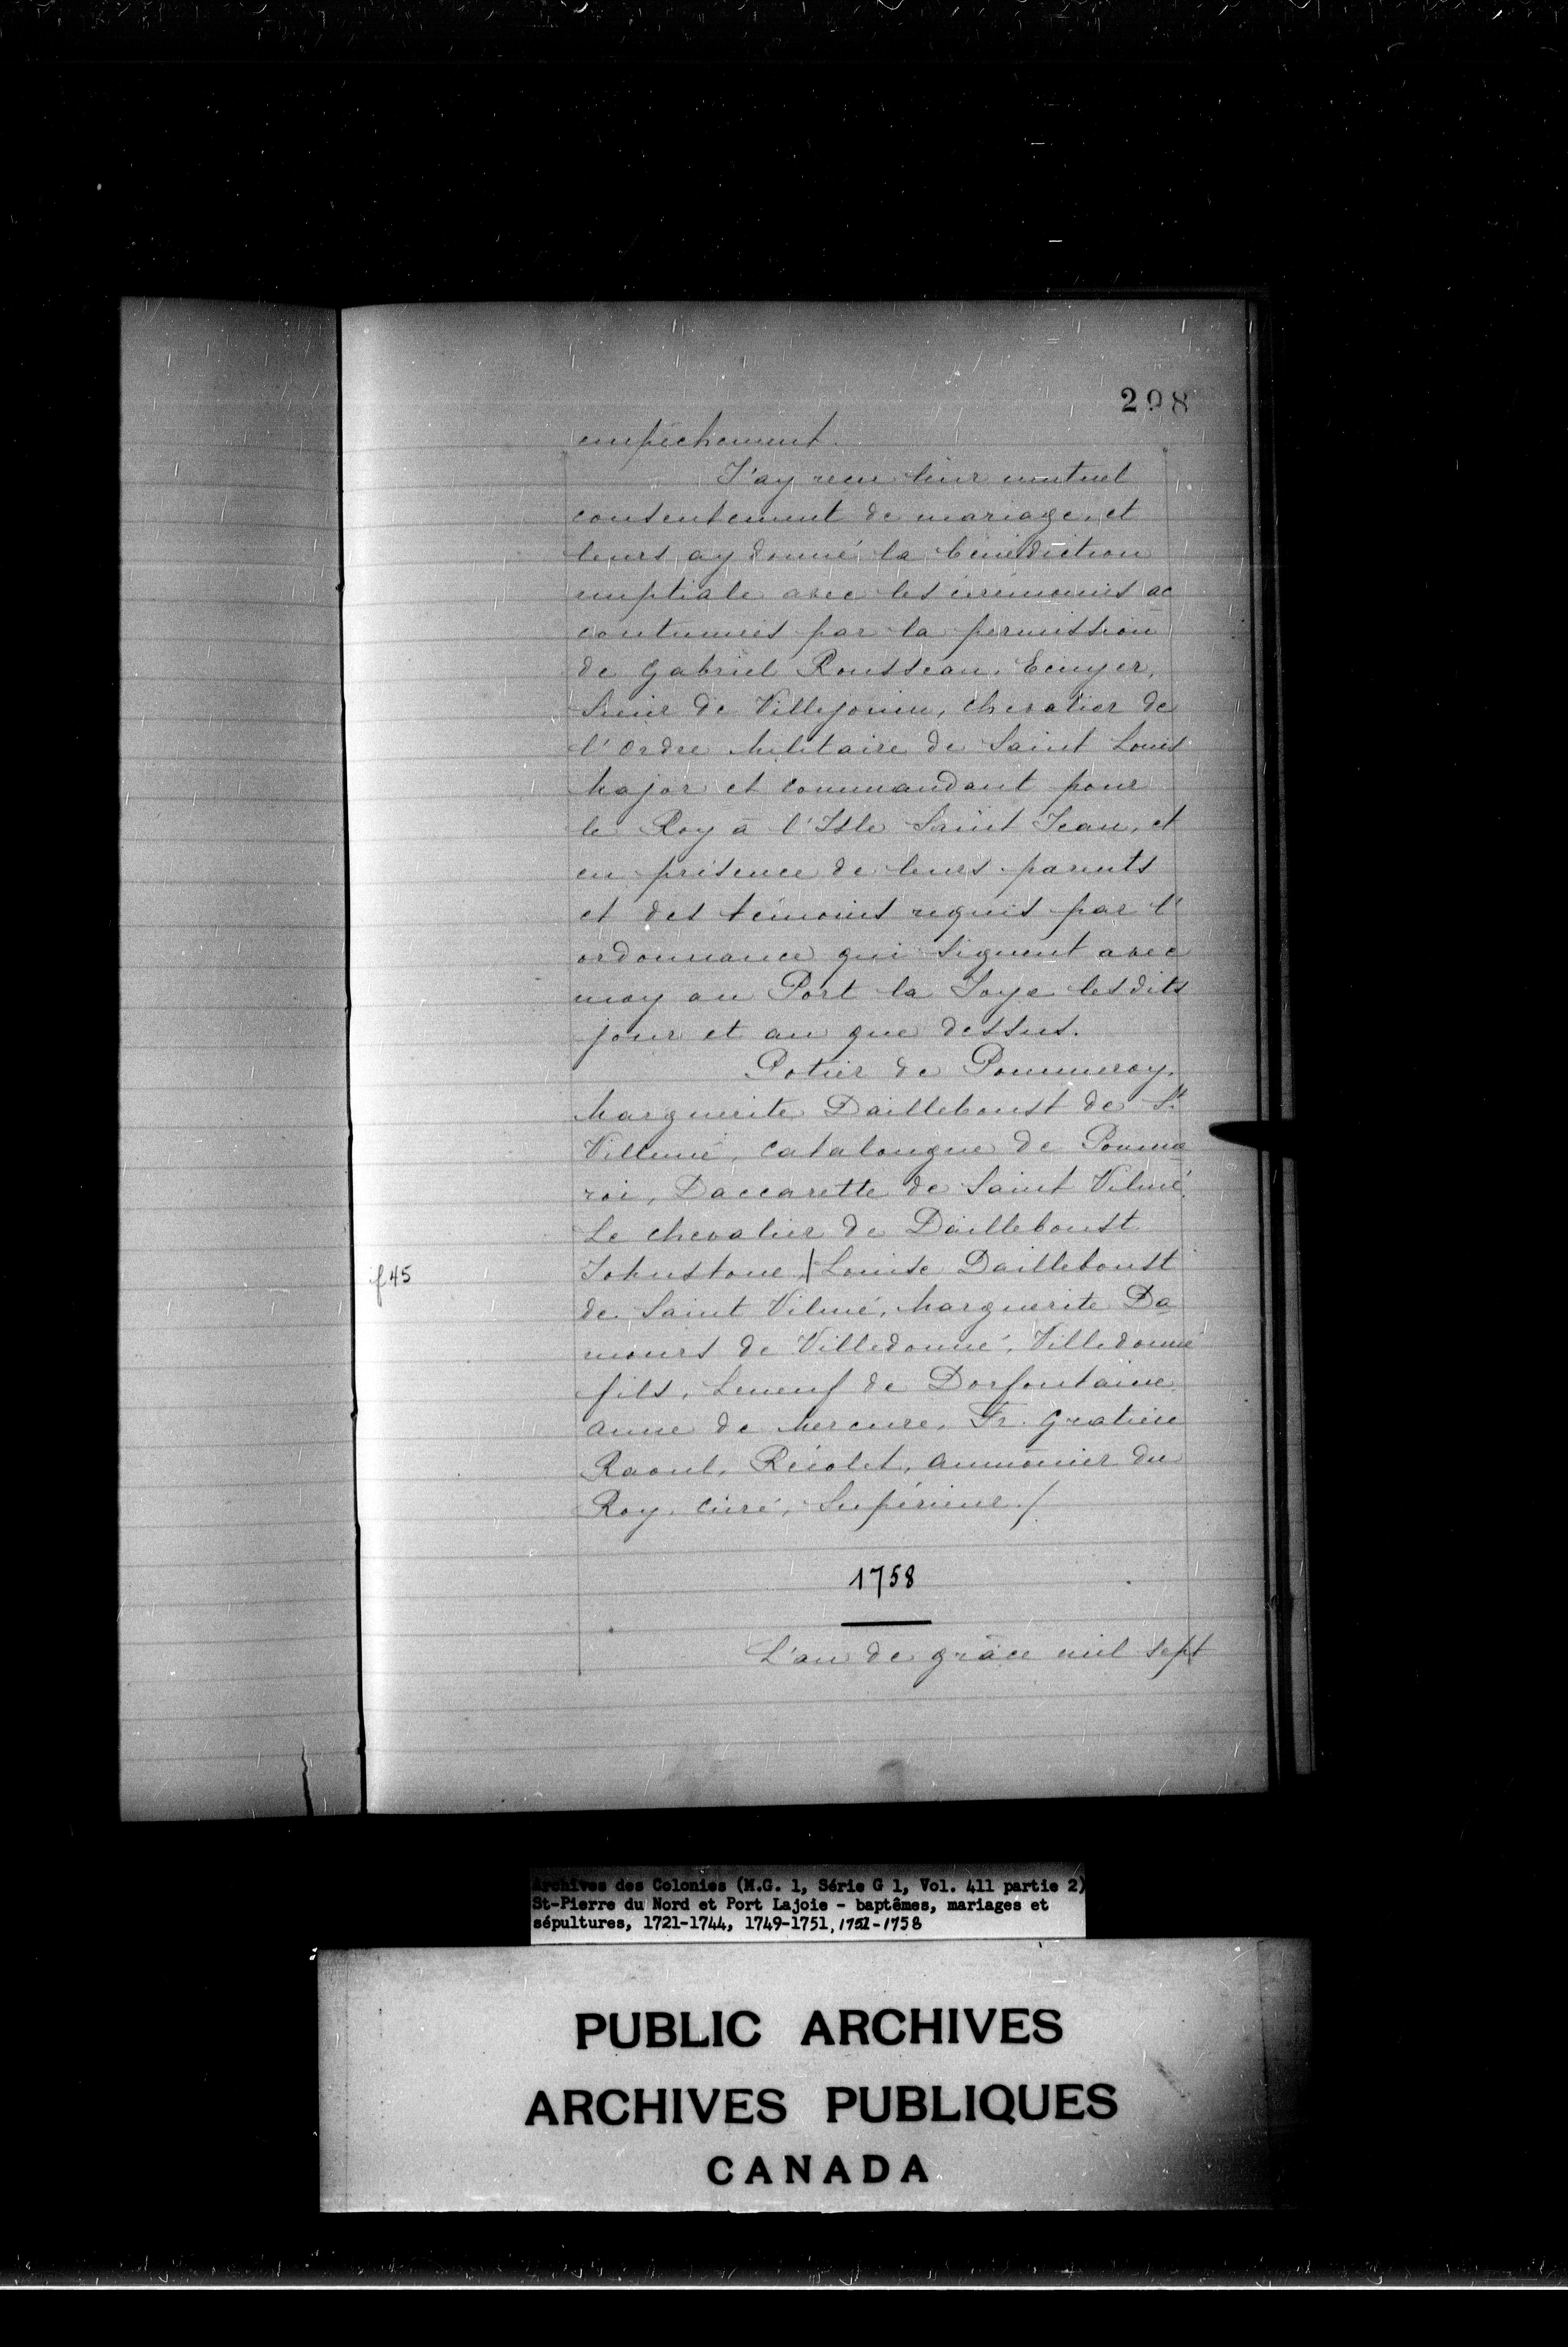 298
empêchement.
J'ay reçu leur mutuel
consentement de mariage, et
leurs ay donné la bénédiction
nuptiale avec les cérémonies ac
coutumées par la permission
de Gabriel Rousseau, Ecuyer,
Sieur de Villejouin, chevalier de
l'Ordre Militaire de Saint Louis
Major et Commandant pour
le Roy à l'Isle Saint Jean, et
en présence de leurs parents
et des témoins requis par l'
ordonnance qui signent avec
moy au Port la Joye lesdits
jour et an que dessus.
Potier de Pommeroy.
Marguerite Dailleboust de St
Villemé, Catalougne de Pomme
roi, Daccarette de Saint Vilmé,
Le chevalier de Dailleboust
f 45
Johnstone, | Louise Dailleboust
de Saint Vilmé, Marguerite Da
mours de Villedonné, Villedonné
fils, Leneuf de Dorfontaine,
anne de Mercure, Fr. Gratien
Raoul, Récolet, aumônier du
Roy, curé, Supérieur./
1758
L'an de grâce mil sept
Archives des Colonies (M.G. 1, Série G 1, Vol. 411 partie 2)
St-Pierre du Nord et Port Lajoie - baptêmes, mariages et
sépultures, 1721-1744, 1749-1751, 1751-1758
PUBLIC ARCHIVES
ARCHIVES PUBLIQUES
CANADA